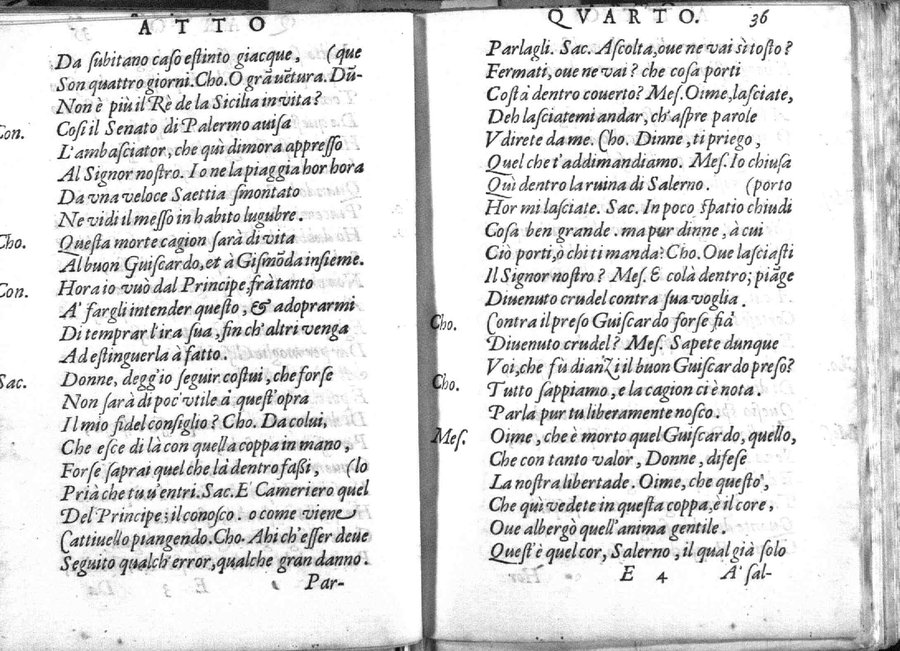 ATTO
Da subitano caso estinto giacque, (que
Son quattro giorni. Cho. O grā vētura. Dū-
Non è più il Rè de la Sicilia in vita?
Con. Così il Senato di Palermo auisa
L'ambasciator, che quì dimora appresso
Al Signor nostro. Io ne la piaggia hor hora
Da vna veloce Saettia smontato
Ne vidi il messo in habito lugubre.
Cho. Questa morte cagion sarà di vita
Al buon Guiscardo, et à Gismōda insieme.
Con. Hora io vuò dal Principe, frà tanto
A' fargli intender questo, & adoprarmi
Di temprar l'ira sua, fin ch'altri venga
Ad estinguerla à fatto.
Sac. Donne, degg'io seguir costui, che forse
Non sarà di poc'vtile à quest'opra
Il mio fidel consiglio? Cho. Da colui,
Che esce di là con quella coppa in mano,
Forse saprai quel che là dentro fassi, (lo
Prià che tu u'entri. Sac. E' Cameriero quel
Del Principe; il conosco. o come viene
Cattiuello piangendo. Cho. Ahi ch'esser deue
Seguito qualch'error, qualche gran danno.
Par-
QVARTO. 36
Parlagli. Sac. Ascolta, oue ne vai sì tosto?
Fermati, oue ne vai? che cosa porti
Costà dentro couerto? Mes. Oime, lasciate,
Deh lasciatemi andar, ch'aspre parole
Vdirete da me. Cho. Dinne, ti priego,
Quel che t'addimandiamo. Mes. Io chiusa
Quì dentro la ruina di Salerno. (porto
Hor mi lasciate. Sac. In poco spatio chiudi
Cosa ben grande. ma pur dinne, à cui
Ciò porti, ò chi ti manda? Cho. Oue lasciasti
Il Signor nostro? Mes. E colà dentro; piāge
Diuenuto crudel contra sua voglia.
Cho. Contra il preso Guiscardo forse fià
Diuenuto crudel? Mes. Sapete dunque
Voi, che fù dianZi il buon Guiscardo preso?
Cho. Tutto sappiamo, e la cagion ci è nota.
Parla pur tu liberamente nosco.
Mes. Oime, che è morto quel Guiscardo, quello,
Che con tanto valor, Donne, difese
La nostra libertade. Oime, che questo',
Che quì vedete in questa coppa, è il core,
Oue albergò quell'anima gentile.
Quest'è quel cor, Salerno, il qual già solo
E 4 A' sal-